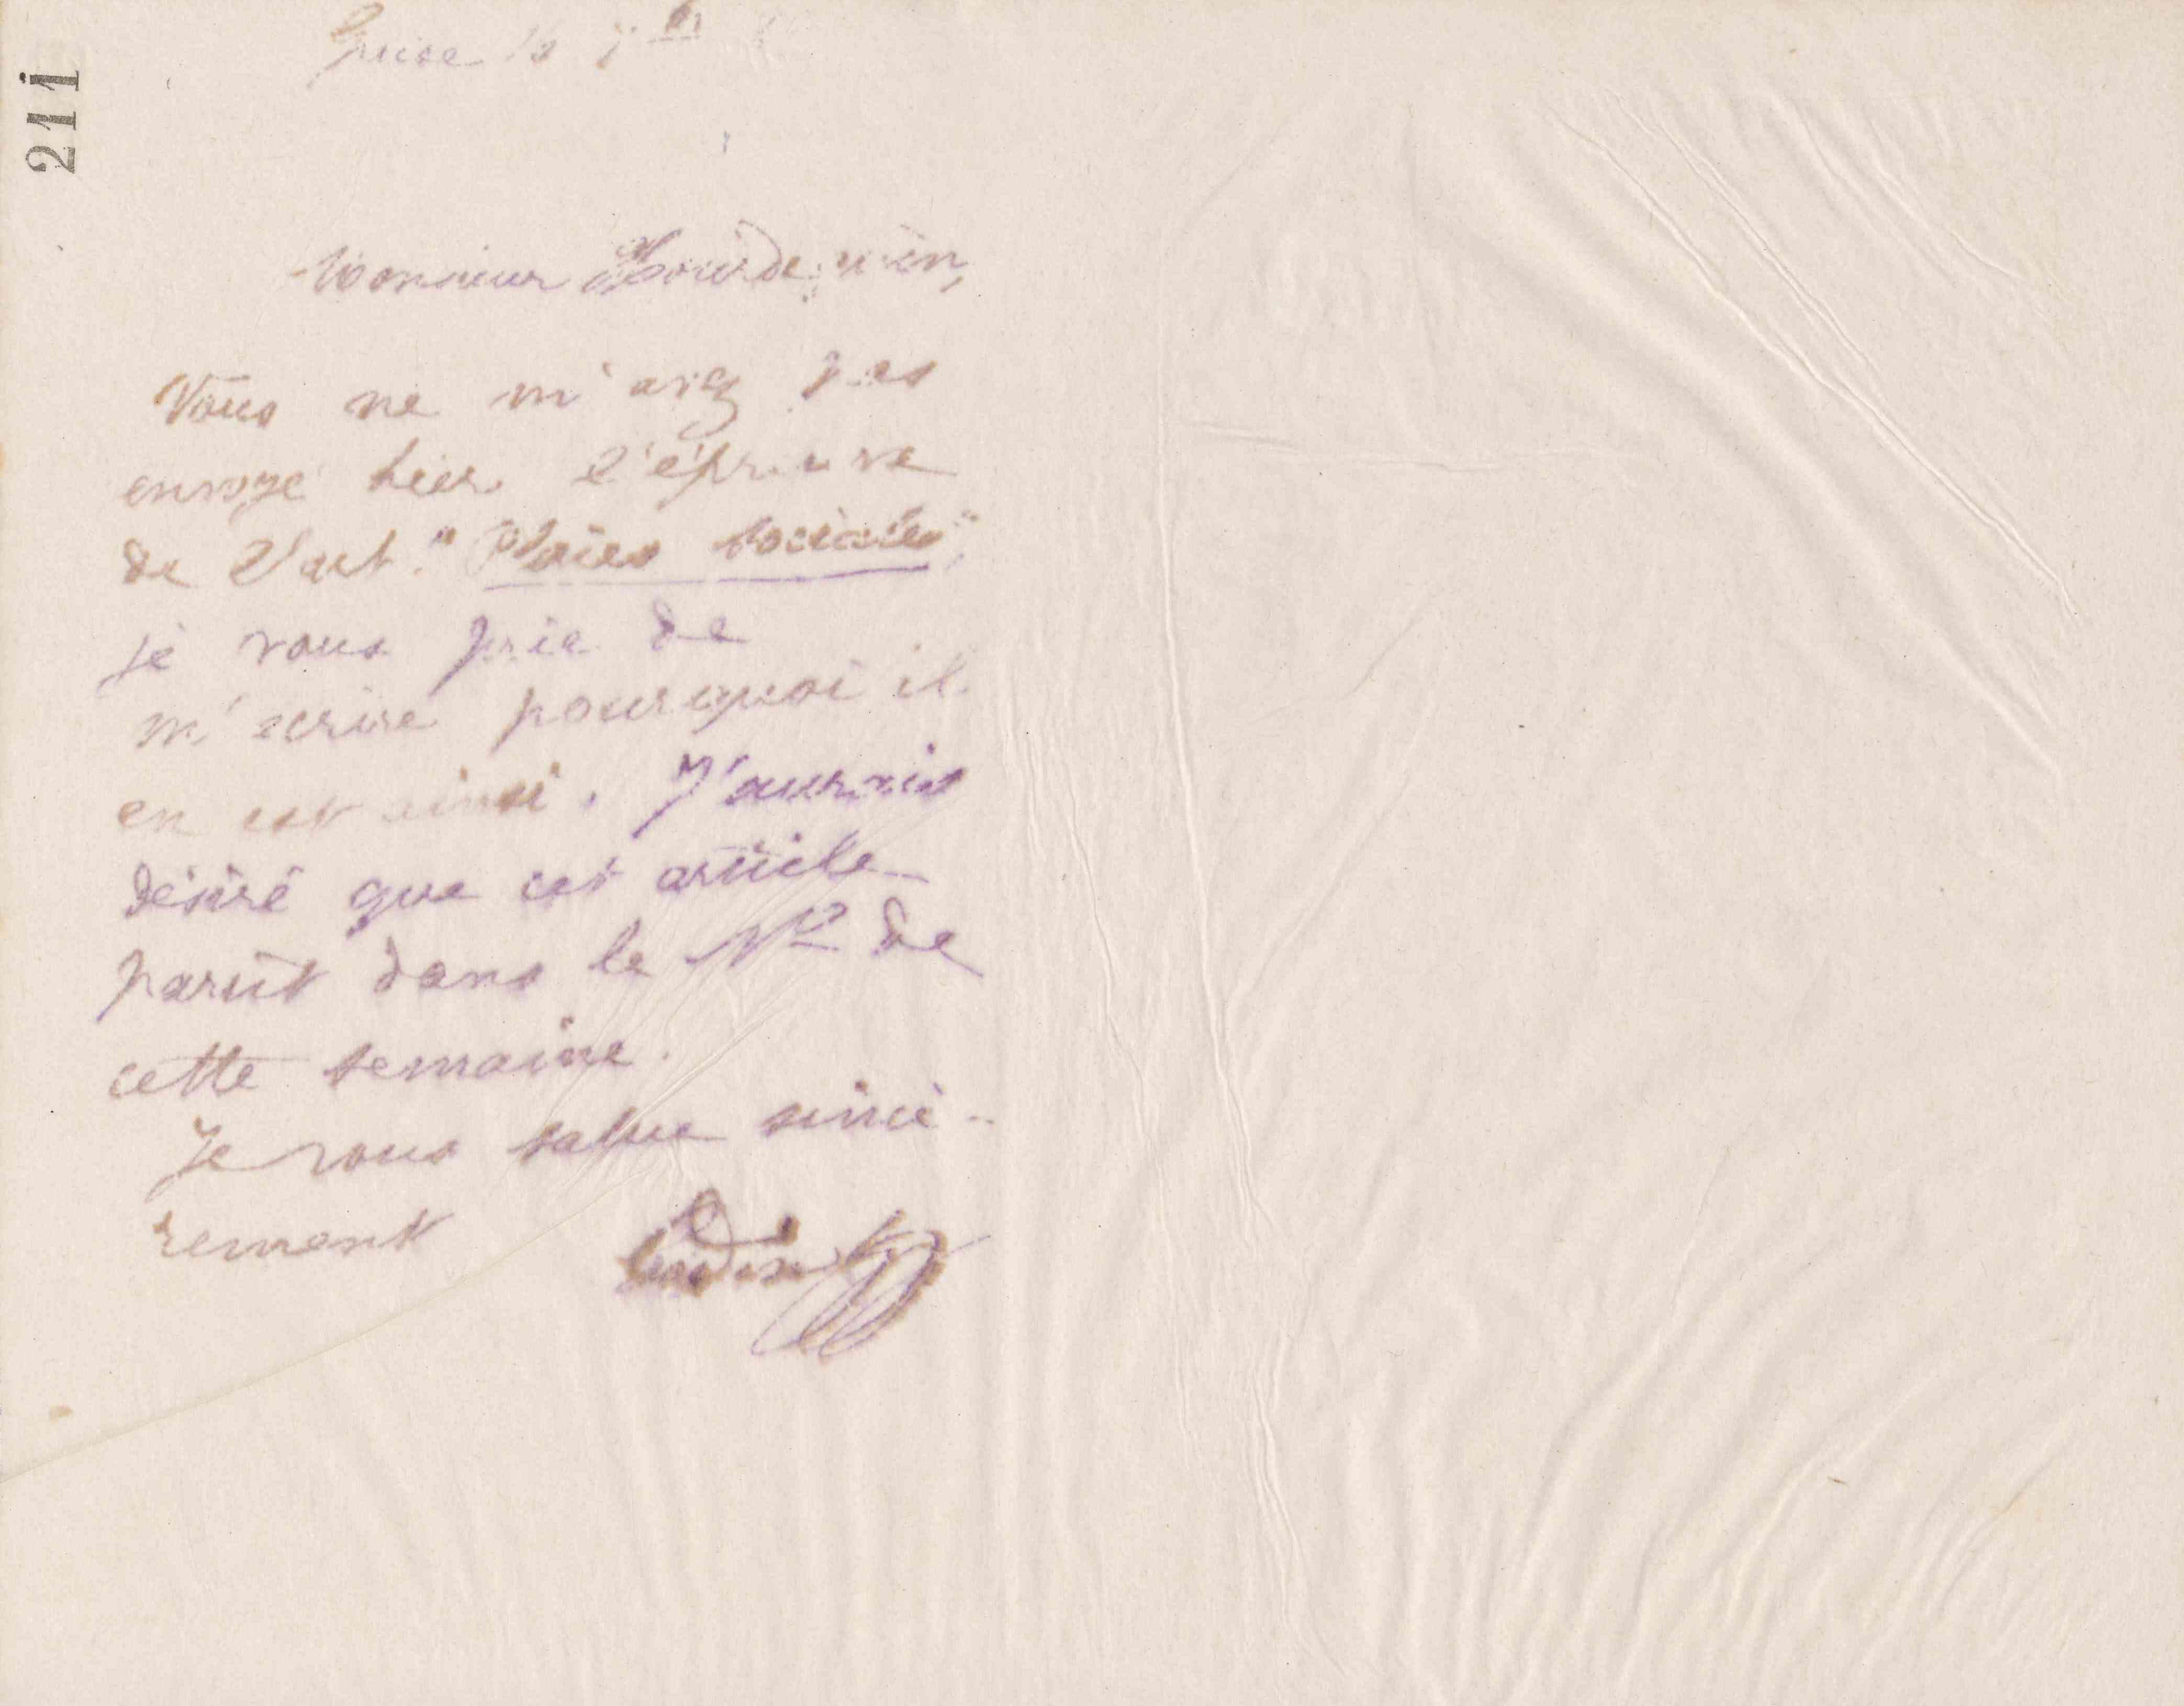 211
Guise
Monsieur Hourdequin,
Vous ne m'avez pas
envoyé hier l'épreuve
de l'art. "Plaies sociales",
je vous prie de
m'écrire pourquoi il
en est ainsi. J'aurais
désiré que cet article
parût dans le N° de
cette semaine.
Je vous salue sincè-
rement
Godin